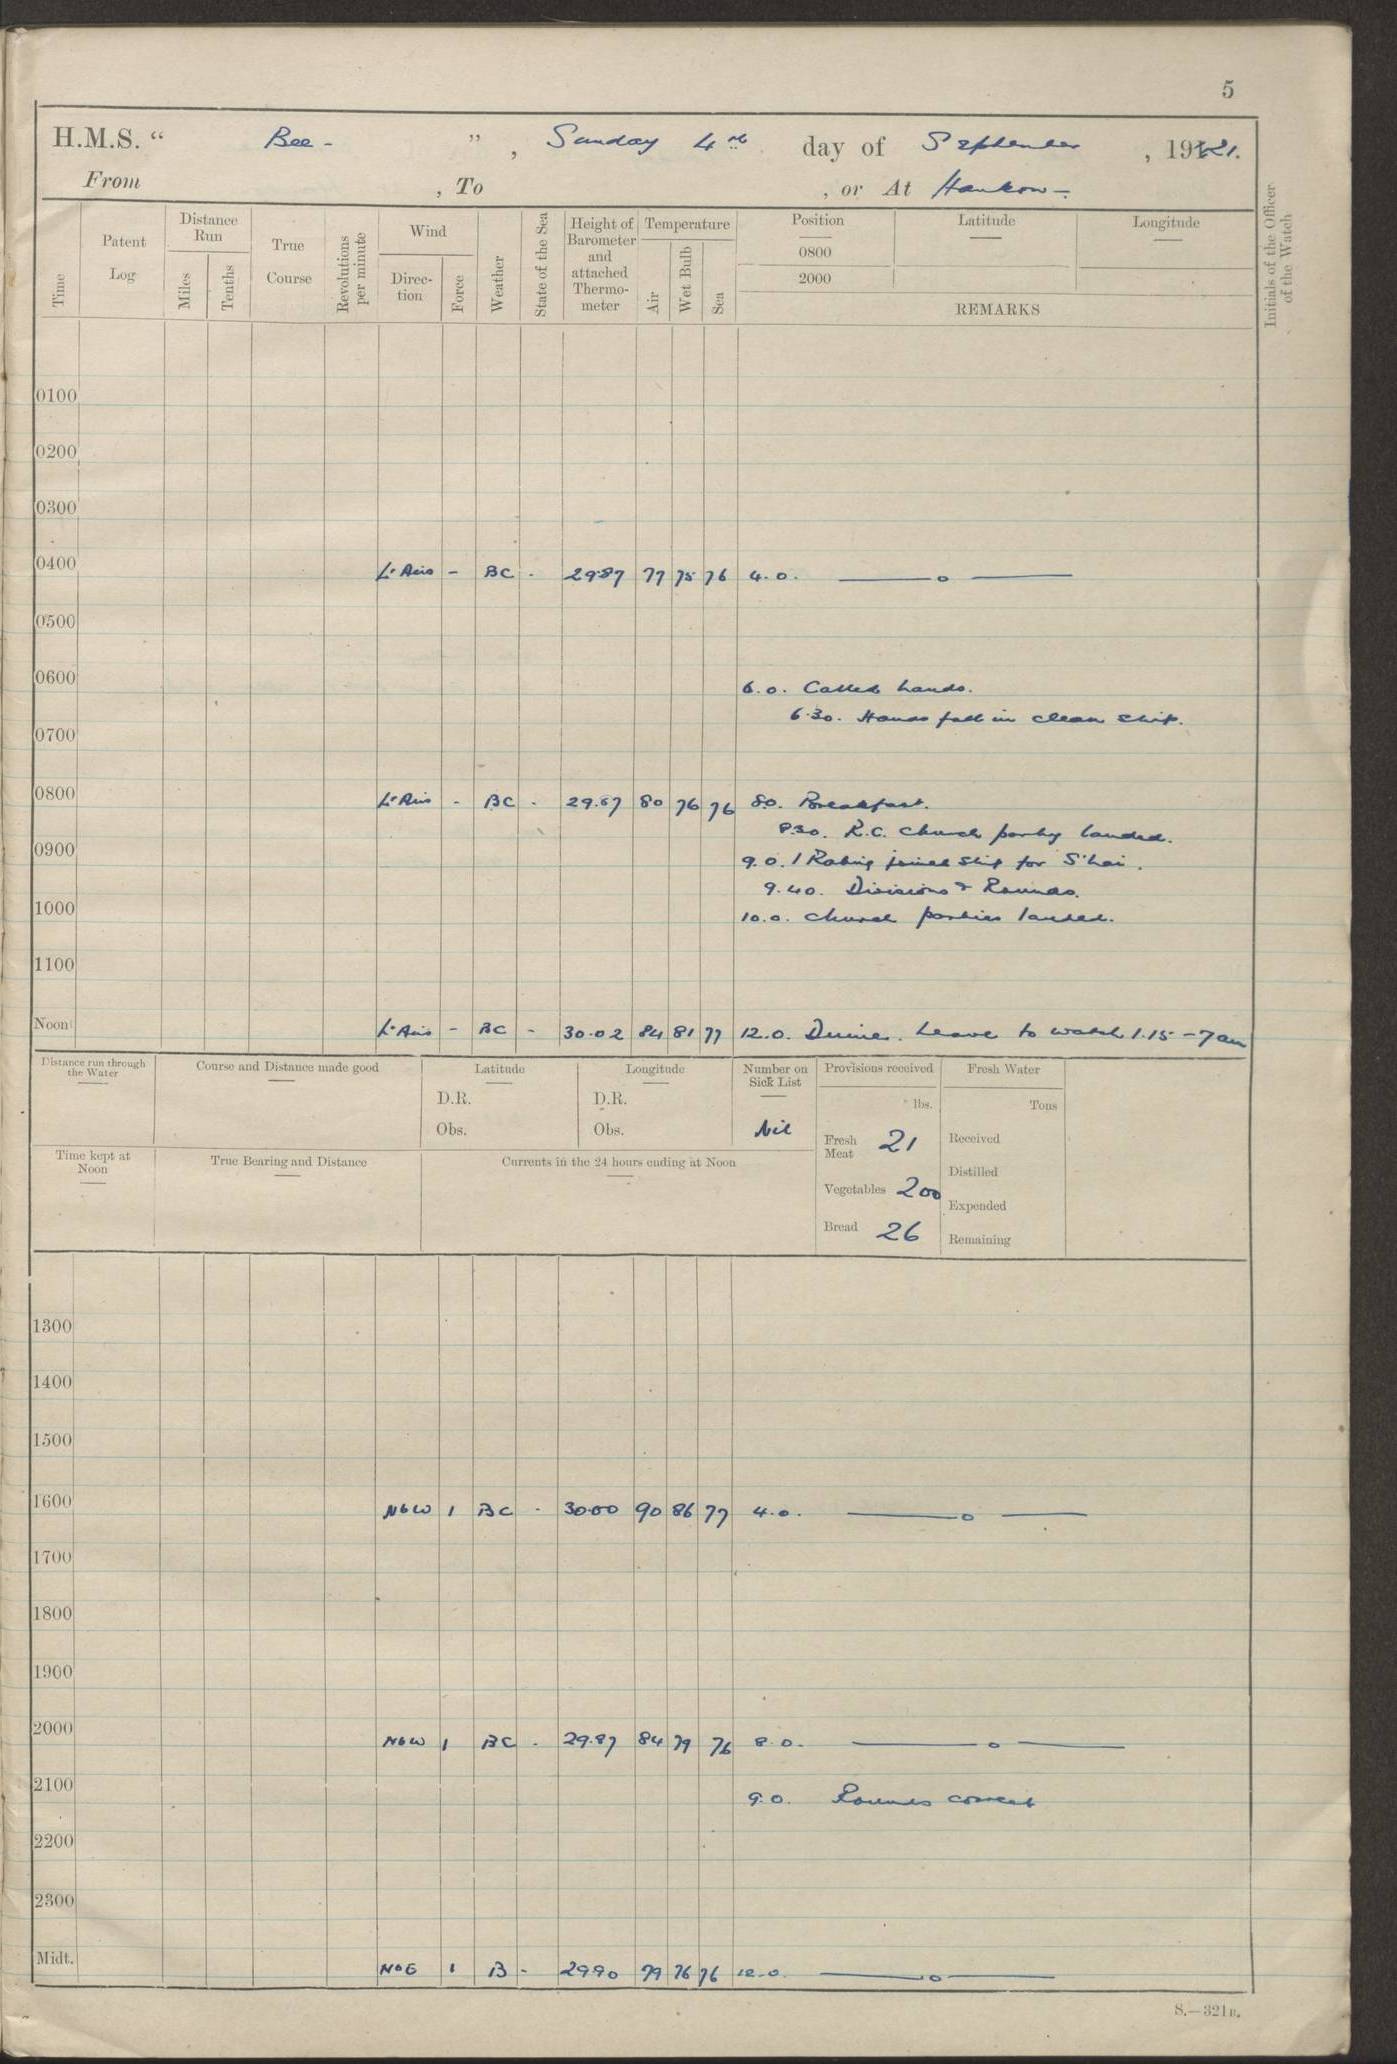 5
H.M.S. “ Bee - ” , Sunday 4th day of September , 1921.
From , To , or At Hankow -
Time
Patent Log
Distance Run
Miles
Tenths
True Course
Revolutions per minute
Wind
Direction
Force
Weather
State of the Sea
Height of Barometer and attached Thermometer
Temperature
Air
Wet Bulb
Sea
Position Latitude Longitude
0800
2000
REMARKS
Initials of the Officer of the Watch
0100
0200
0300
0400 Lt Airs - BC - 29.87 77 75 76 4.0. —— o ——
0500
0600 6.0. Called hands.
6.30. Hands fall in clean ship.
0700
0800 Lt Airs - BC - 29.87 80 76 76 8.0. Breakfast.
8.30. R.C. Church party landed.
0900 9.0. 1 Rating joined ship for S'hai.
9.40. Divisions & Rounds.
1000 10.0. Church parties landed.
1100
Noon Lt Airs - BC - 30.02 84 81 77 12.0. Dinner. Leave to watch 1.15 - 7 am
Distance run through the Water
Course and Distance made good
Latitude
D.R.
Obs.
Longitude
D.R.
Obs.
Number on Sick List
Nil
Provisions received
lbs.
Fresh Meat 21
Vegetables 200
Bread 26
Fresh Water
Tons
Received
Distilled
Expended
Remaining
Time kept at Noon
True Bearing and Distance
Currents in the 24 hours ending at Noon
1300
1400
1500
1600 NbW 1 BC - 30.00 90 86 77 4.0. —— o ——
1700
1800
1900
2000 NbW 1 BC - 29.87 84 79 76 8.0. —— o ——
2100 9.0. Rounds correct
2200
2300
Midt. NbE 1 B - 29.90 79 76 76 12.0. —— o ——
S.—321B.